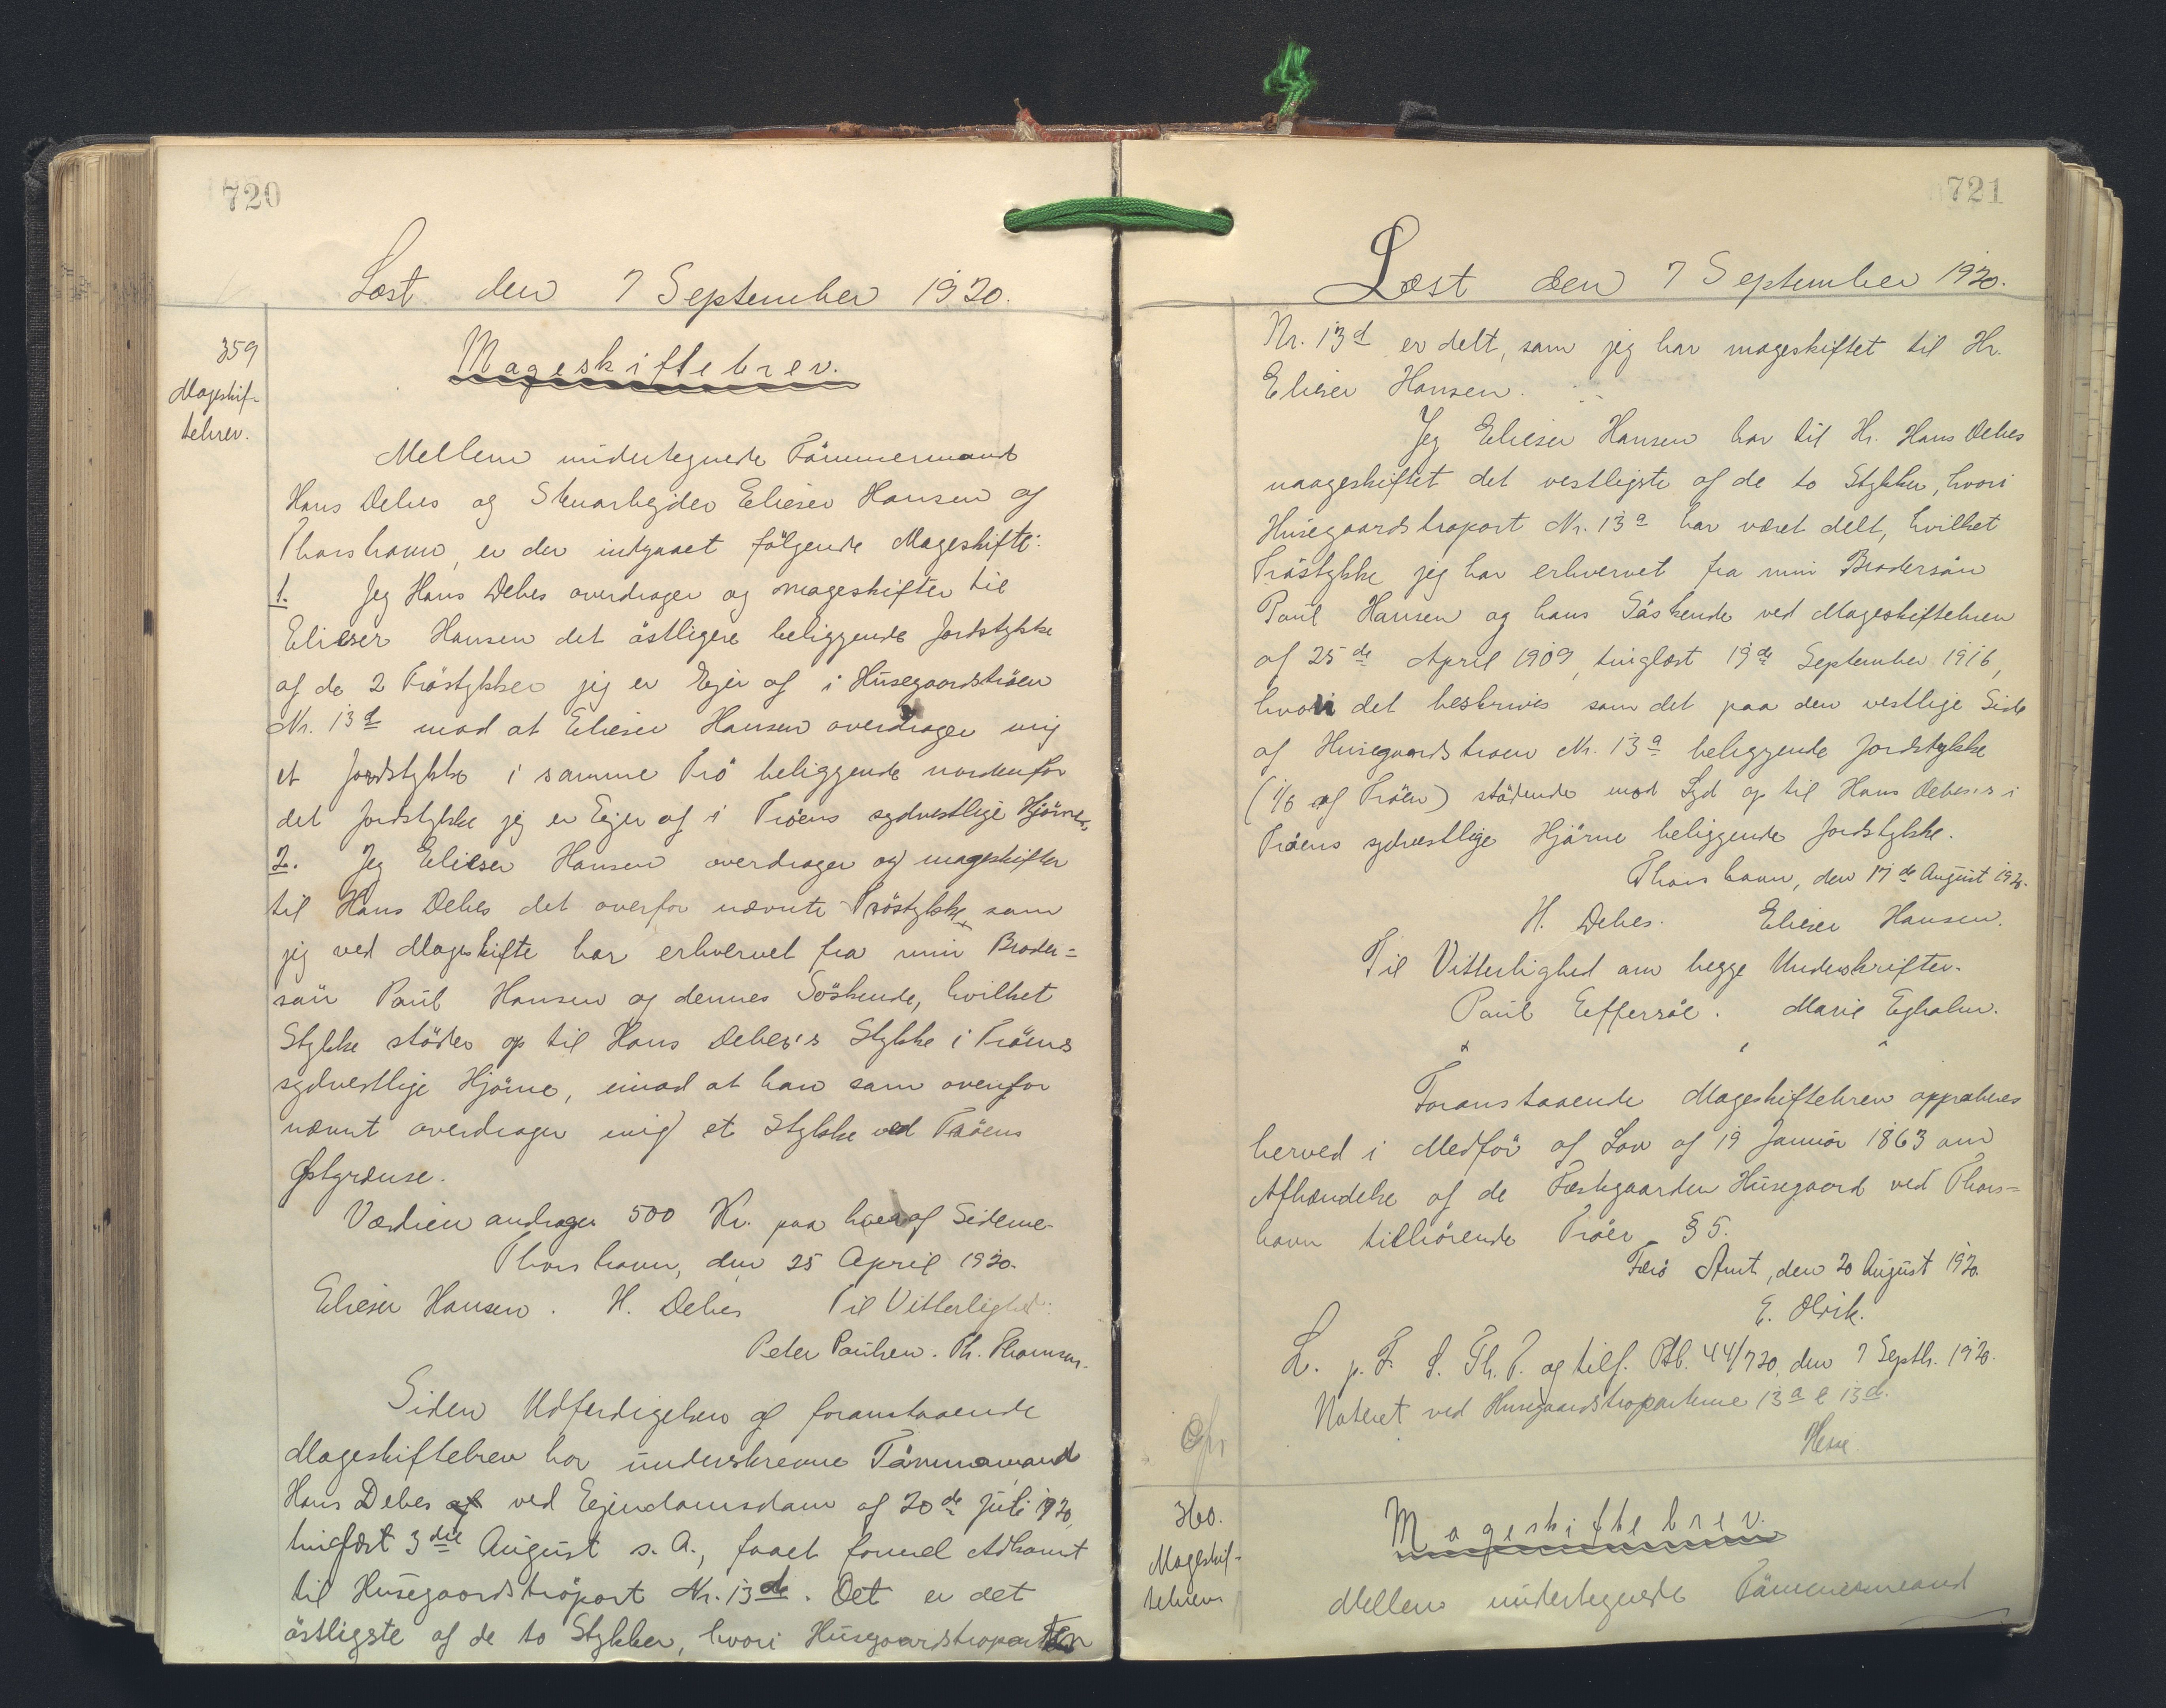 720
Læst den 7 September 1920.
359
Mageskif-
tebrev.
Mageskiftebrev.
Mellem undertegnede Tömmermand
Hans Debes og Stenarbejder Elieser Hansen af
Thorshavn, er der indgaaet fölgende Mageskifte:
1. Jeg Hans Debes overdrager og mageskifter til
Elieser Hansen det östligere beliggende Jordstykke
af de 2 Tröstykker jeg er Ejer af i Husegaardströen
Nr. 13d mod at Elieser Hansen overdrager mig
et Jordstykke i samme Trö beliggende nordenfor
det Jordstykke jeg er Ejer af i Tröens sydvestlige Hjörne.
2. Jeg Elieser Hansen overdrager og mageskifter
til Hans Debes det overfor nævnte Tröstykke, som
jeg ved Mageskifte har erhvervet fra min Broder=
sön Paul Hansen og dennes Söskende, hvilket
Stykke stöder op til Hans Debes's Stykke i Tröens
sydvestlige Hjörne, imod at han som ovenfor
nævnt overdrager mig et Stykke ved Tröens
Østgrænse.
Værdien andrager 500 Kr. paa hver af Siderne.
Thorshavn, den 25 April 1920.
Elieser Hansen. H. Debes Til Vitterlighed:
Peter Poulsen. Th. Thomsen.
Siden Udferdigelsen af foranstaaende
Mageskiftebrev har underskrevne Tömmermand
Hans Debes af ved Ejendomsdom af 20de Juli 1920,
tinglæst 3die August s. A., faaet formel Adkomst
til Husegaardströport Nr. 13d. Det er det
östligste af de to Stykker, hvori Husegaardstroparten
721
Læst den 7 September 1920.
Nr. 13d er delt, som jeg har mageskiftet til Hr.
Elieser Hansen.
Jeg Elieser Hansen har til Hr. Hans Debes
mageskiftet det vestligste af de to Stykker, hvori
Husegaardstropart Nr. 13a har været delt, hvilket
Tröstykke jeg har erhvervet fra min Brodersön
Paul Hansen og hans Söskende ved Mageskiftebrev
af 25de April 1909, tinglæst 19de September 1916,
hvori det beskrives som det paa den vestlige Side
af Husegaardstroen Nr. 13a beliggende Jordstykke
(1/6 af Tröen) stödende mod Syd op til Hans Debes's i
Tröens sydvestlige Hjörne beliggende Jordstykke.
Thorshavn, den 17de August 1920.
H. Debes. Elieser Hansen.
Til Vitterlighed om begge Underskrifter.
Paul Effersöe. Marie Egholm.
Foranstaaende Mageskiftebrev approberes
herved i Medför af Lov af 19 Januar 1863 om
Afhændelse af de Fæstegaarden Husegaard ved Thors=
havn tilhörende Tröer § 5.
Færö Amt, den 20 August 1920.
E. Olrik.
L. p. F. S. Th. P. og tilf. Ptb. 44/720, den 7 Septb. 1920.
Noteret ved Husegaardstroparterne 13a & 13d.
Hesse
360.
Mageskif-
tebrev
Mageskiftebrev.
Mellem undertegnede Tömmermand